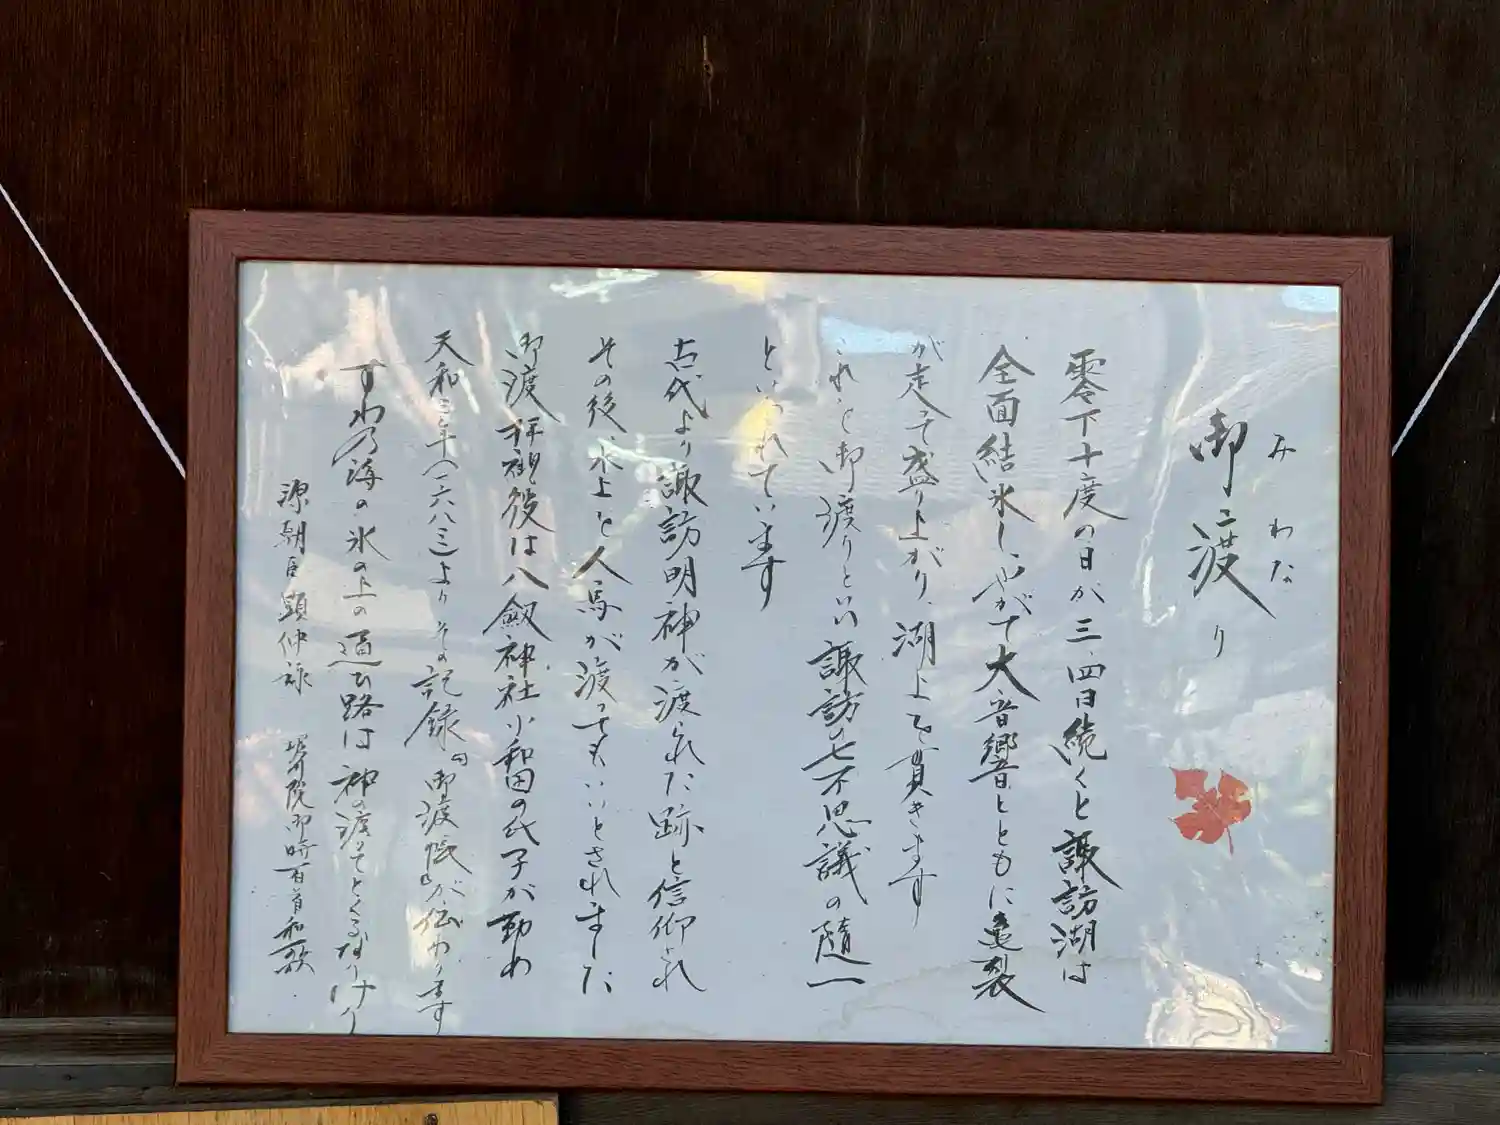 みわた
御渡り
零下十度の日が三、四日続くと諏訪湖は
全面結氷し、やがて大音響とともに亀裂
が走って盛り上がり、湖上を貫きます
これを御渡りといい諏訪の七不思議の随一
といわれています
古代より諏訪明神が渡られた跡と信仰され
その後、氷上を人馬が渡ってもいいとされました
御渡拝観役は八劔神社小和田の氏子が勤め
天和三年（一六八三）よりその記録「御渡帳」が伝わります
すわの海の氷の上の通ひ路は神の渡りてとくるなりけり
源朝臣顕仲 堀川院御時百首和歌